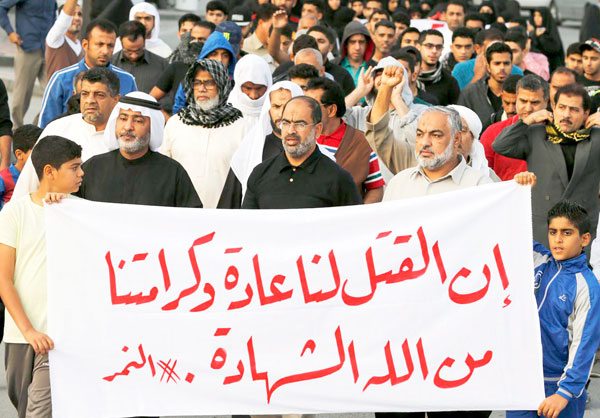 إن القتل لنا عادة وكرامتنا
من الله الشهادة . #النمر